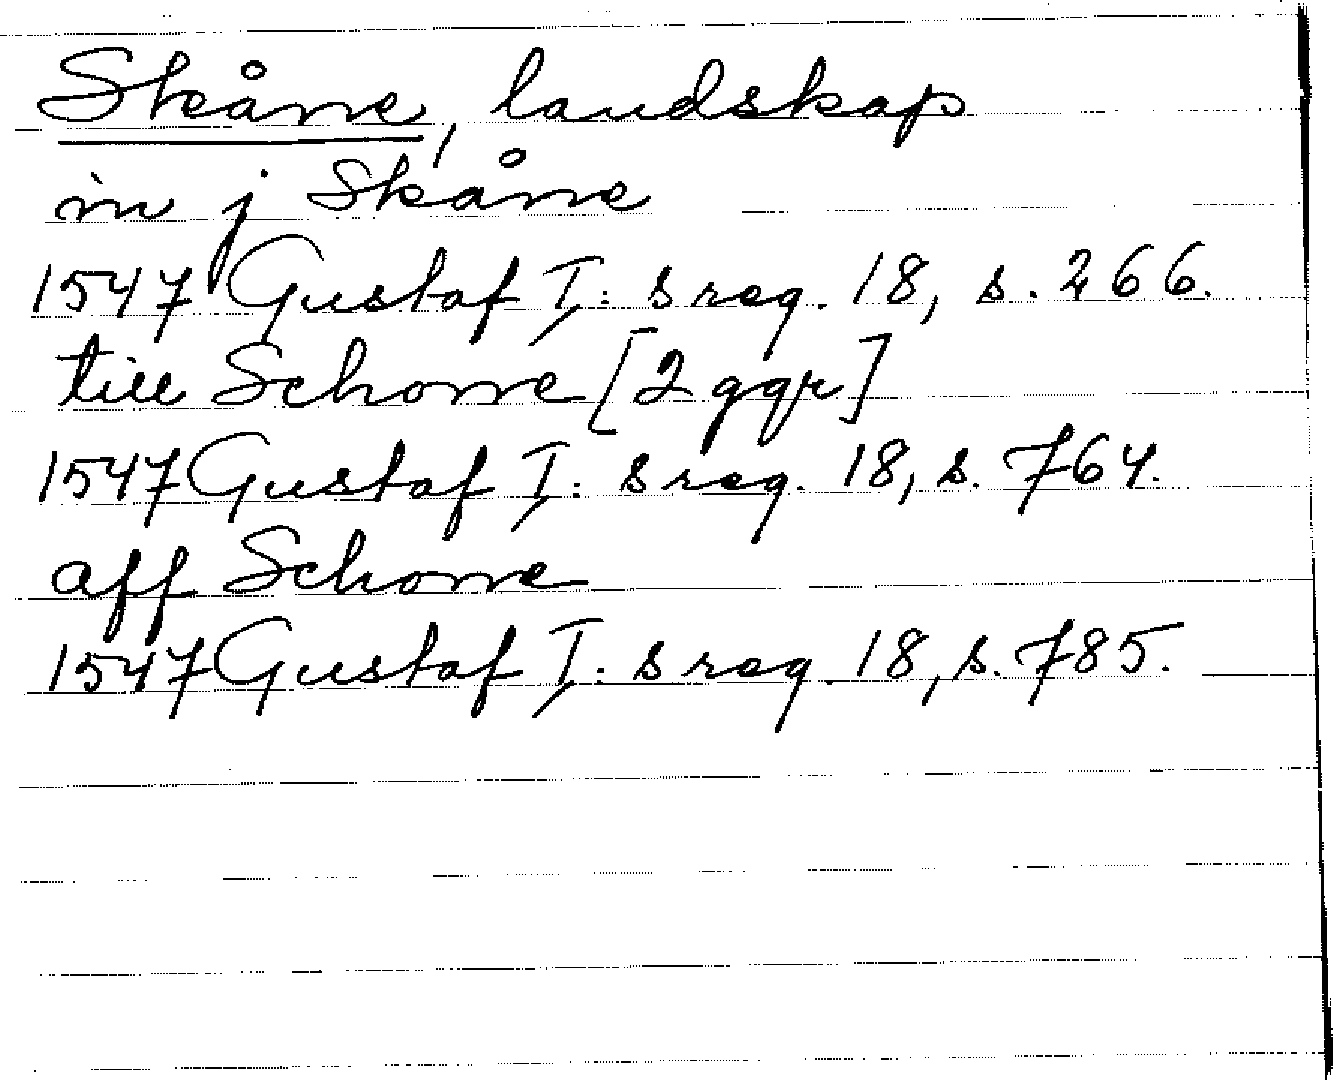 Skåne, landskap
in j Skåne
1547 Gustaf I: s reg. 18, s. 266.
till Schone [2 ggr]
1547 Gustaf I: s reg. 18, s. 764.
aff Schone
1547 Gustaf I: s reg. 18, s. 785.